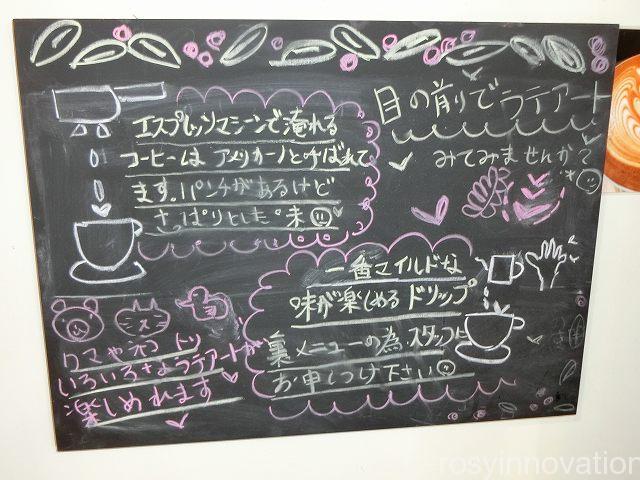 目の前でラテアート
みてみませんか?
エスプレッソマシーンで淹れる
コーヒーは アメリカーノと呼ばれて
ます。パンチがあるけど
さっぱりとした味
一番マイルドな
味が楽しめる ドリップ
裏メニューの為 スタッフに
お申しつけ下さい
クマやネコ トリ
いろいろなラテアートが
楽しめれます
rosyinnovation